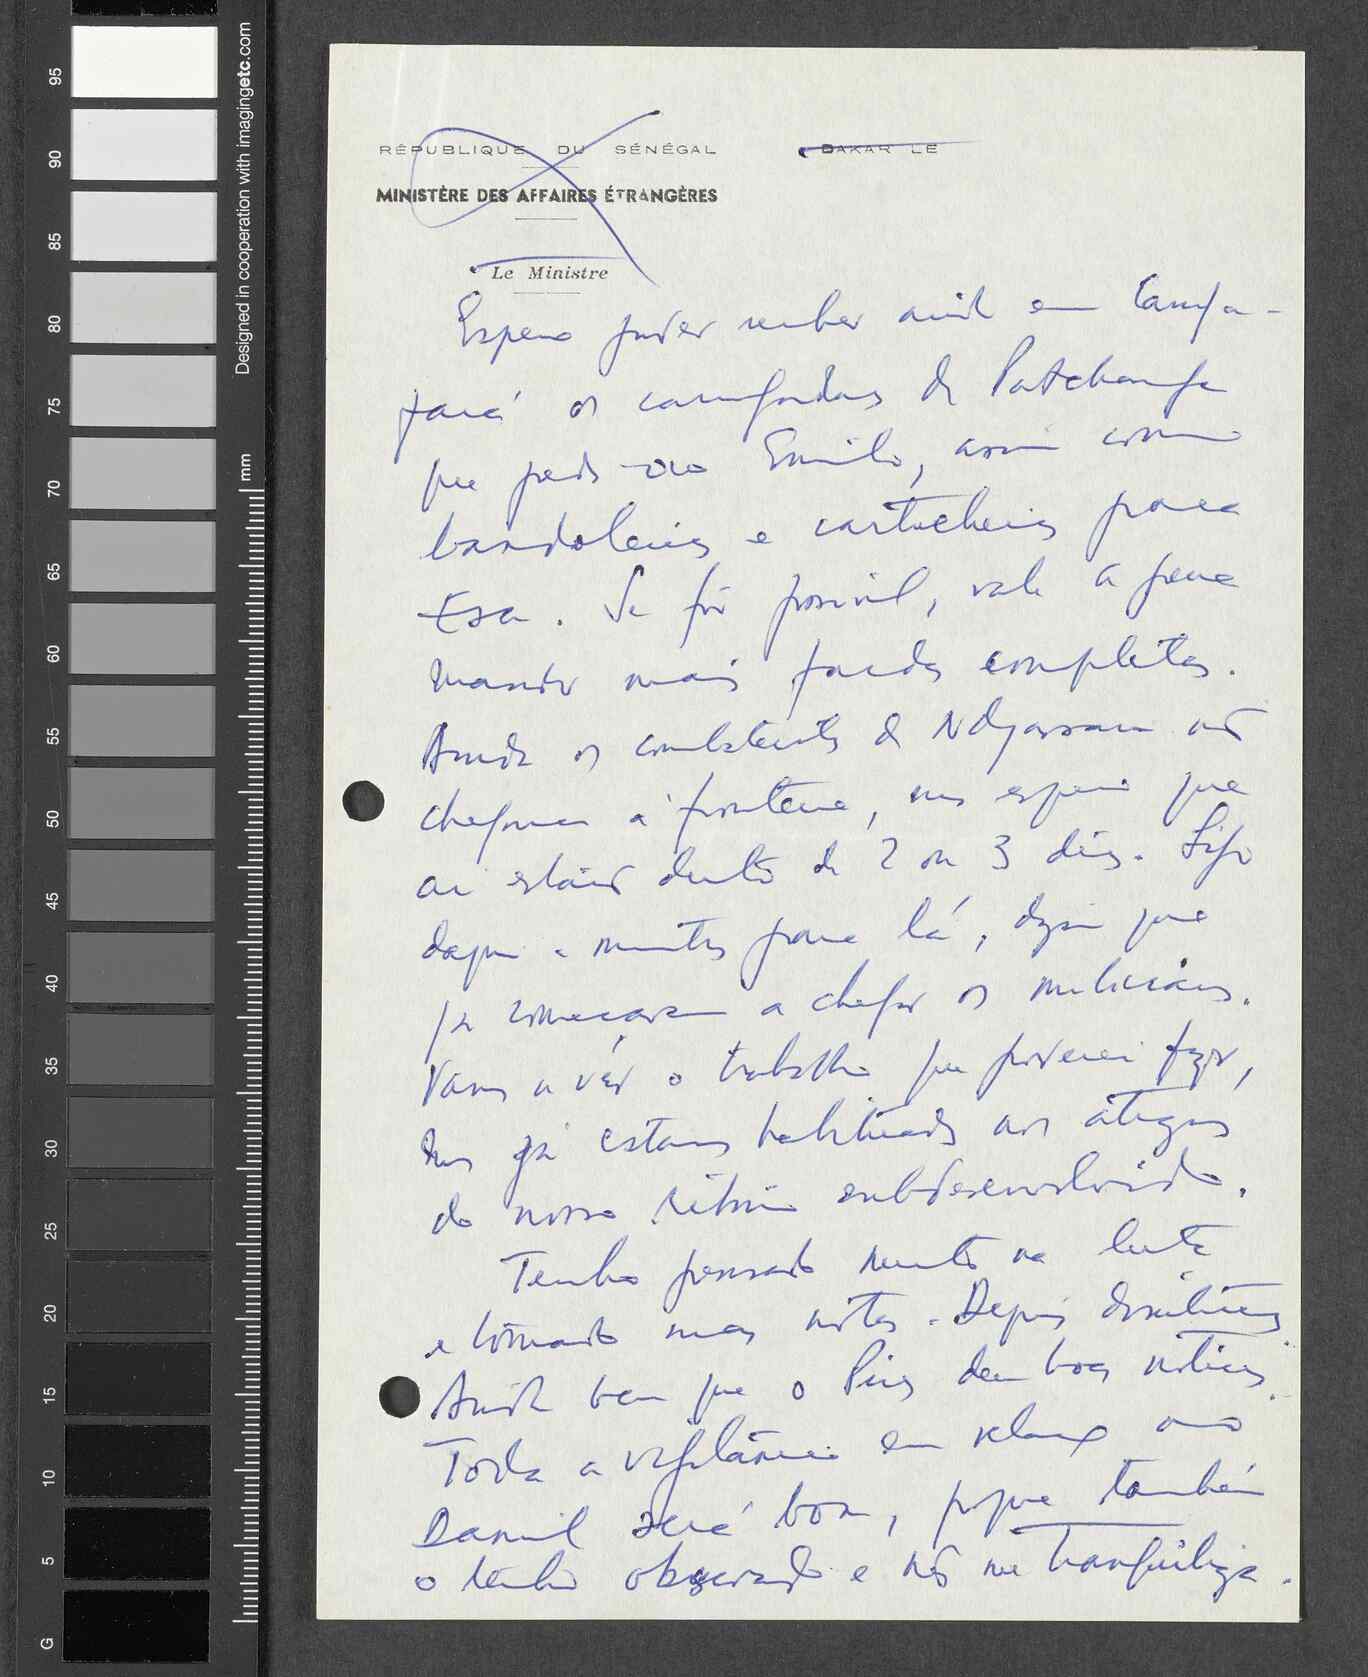 95
90
85
80
75
70
65
60
55
50
45
40
35
30
25
20
15
10
5
G
Designed in cooperation with imagingetc.com
mm
RÉPUBLIQUE DU SÉNÉGAL
DAKAR LE
MINISTÈRE DES AFFAIRES ÉTRANGÈRES
Le Ministre
Espero poder receber ainda em Campa-
os camaradas de
que pediu ao Emílio, assim como
bandoleiras e cartucheiras para
essa. Se fôr possível, vale a pena
mandar mais fardas completas.
Ainda os combatentes de não
chegaram à fronteira, mas espero que
aí estarão dentro de 2 ou 3 dias. Sigo
daqui a minutos para lá, dizem que
já começaram a chegar os milicianos.
Vamos a vêr o trabalho que poderei fazer,
mas já estamos habituados aos atrasos
do nosso ritmo subdesenvolvido.
Tenho pensado muito na luta
e tomado umas notas. Depois
Ainda bem que o Pires deu boas notícias.
Toda a vigilância em relação ao
Daniel será boa, porque também
o tenho observado e não me tranquiliza.